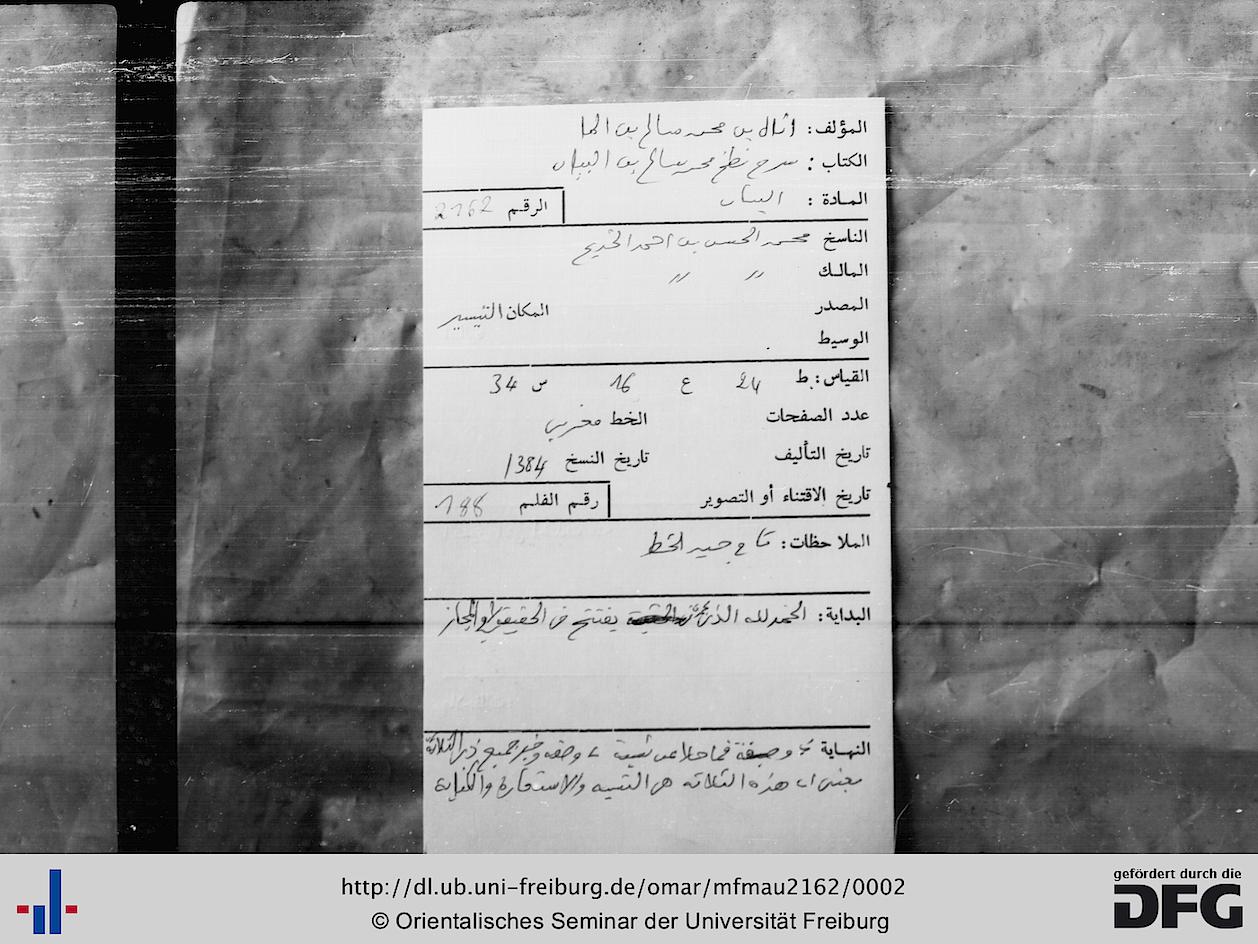 المؤلف: بن محمد صالح بن
الكتاب: شرح نظم محمد سالم بن
المادة: البيان
الرقم 2162
الناسخ محمد الحسن بن احمد الخديم
المالك " "
المصدر
المكان التيسير
الوسيط
القياس: ط 24 ع 16 س 34
عدد الصفحات
الخط مغربي
تاريخ التأليف
تاريخ النسخ 1384
تاريخ الاقتناء أو التصوير
رقم الفلم 188
الملاحظات: تام جيد الخط
البداية: الحمد لله الذي يفتتح في الحقيقة أو المجاز
النهاية وصفه جميع ذي الثلاثة
يعني ان هذه الثلاثة هي التشبيه والاستعارة والكناية
http://dl.ub.uni-freiburg.de/omar/mfmau2162/0002
© Orientalisches Seminar der Universität Freiburg
gefördert durch die
DFG